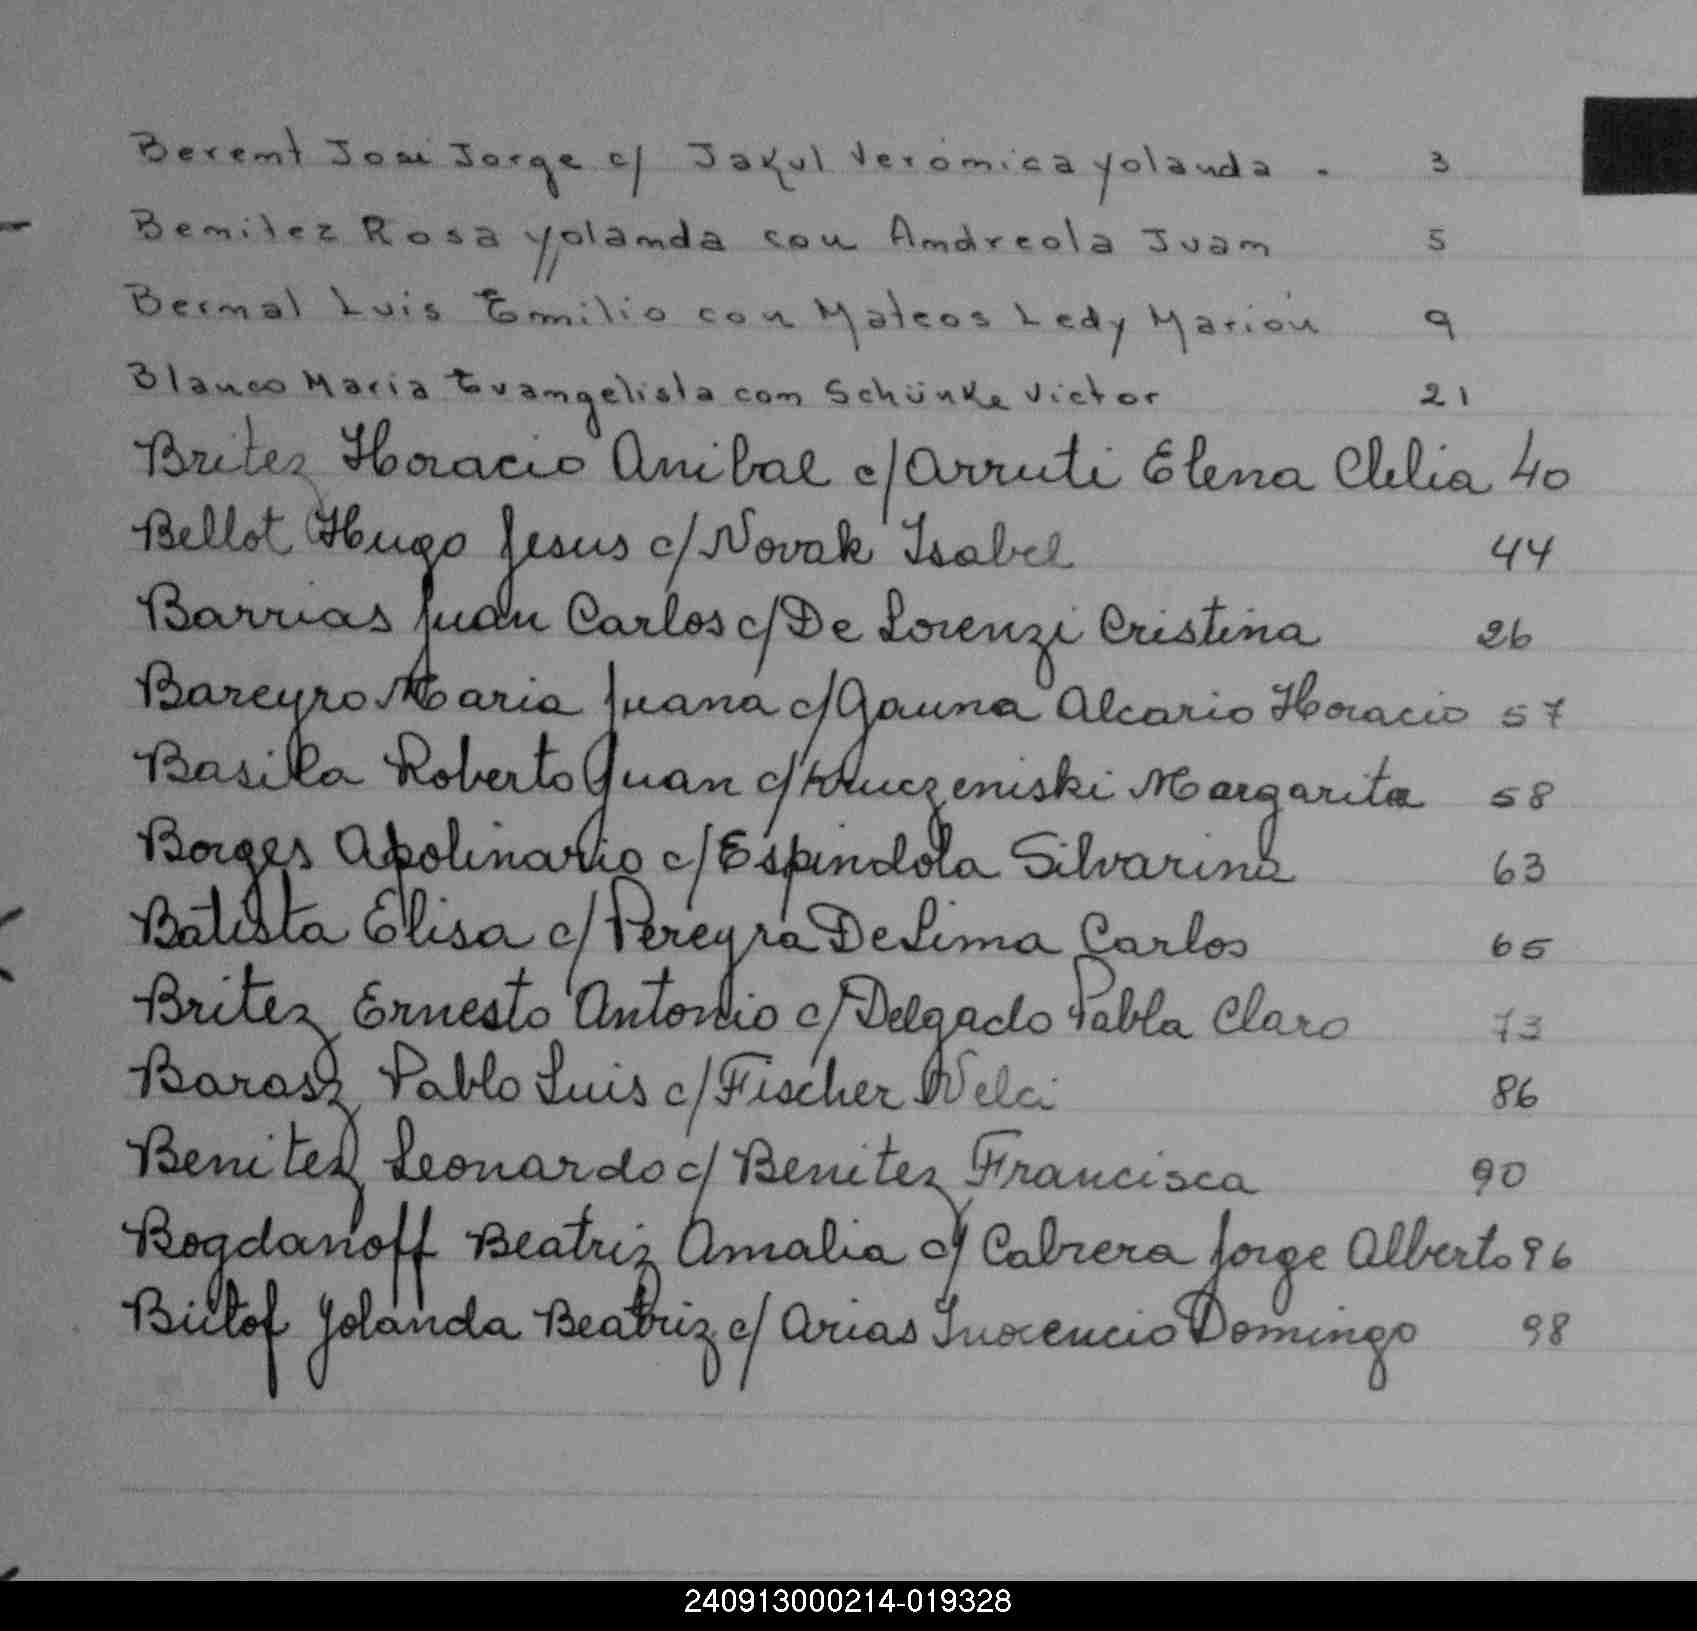 Berent José Jorge c/ Jakul Verónica Yolanda . 3
Benitez Rosa Yolanda con Andreola Juan 5
Bernal Luis Emilio con Mateos Ledy Marión 9
Blanco María Evangelista con Schünke Victor 21
Britez Horacio Anibal c/ Arruti Elena Clelia 40
Bellot Hugo Jesus c/ Novak Isabel 44
Barrias Juan Carlos c/ De Lorenzi Cristina 26
Bareyro Maria Juana c/ Gauna Alcario Horacio 57
Basila Roberto Juan c/ Kruczeniski Margarita 58
Borges Apolinario c/ Espindola Silvarina 63
Batista Elisa c/ Pereyra De Lima Carlos 65
Britez Ernesto Antonio c/ Delgado Pabla Claro 73
Barasz Pablo Luis c/ Fischer Nelci 86
Benitez Leonardo c/ Benitez Francisca 90
Bogdanoff Beatriz Amalia c/ Cabrera Jorge Alberto 96
Bülof Yolanda Beatriz c/ Arias Inocencio Domingo 98
240913000214-019328